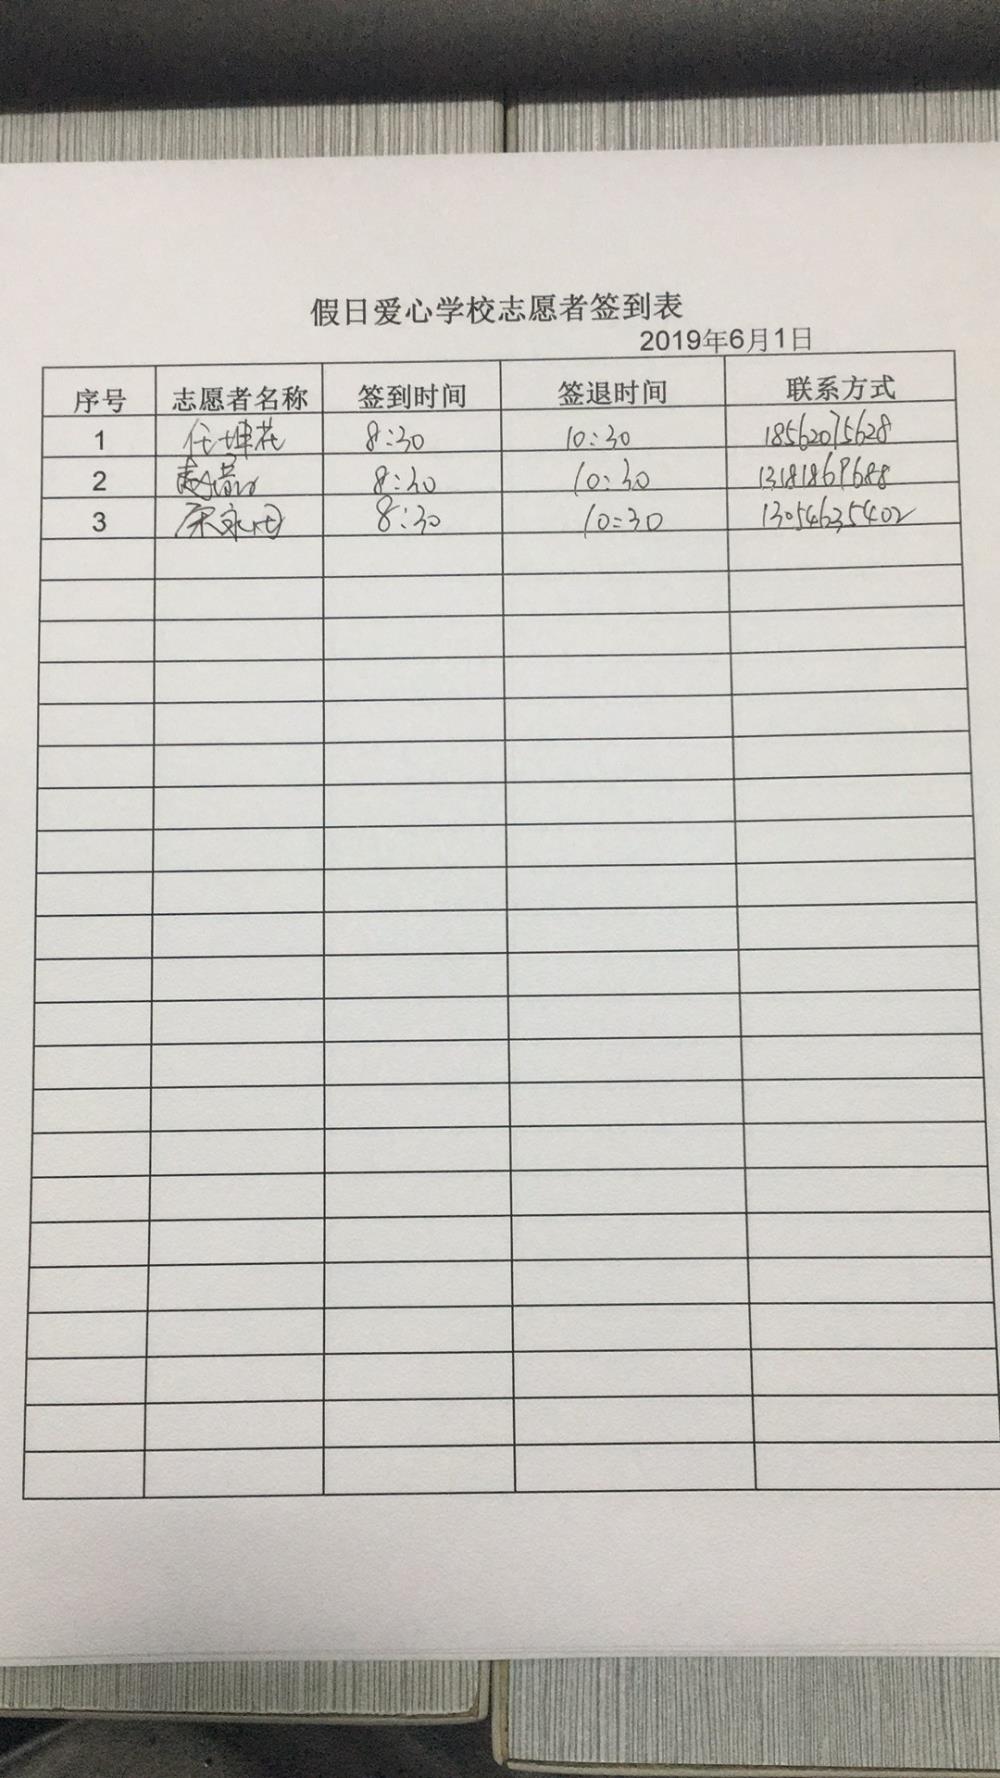 假日爱心学校志愿者签到表
2019年6月1日
序号 志愿者名称 签到时间 签退时间 联系方式
1 任坤花 8:30 10:30 18562075628
2 8:30 10:30 13181869688
3 8:30 10:30 13054635402